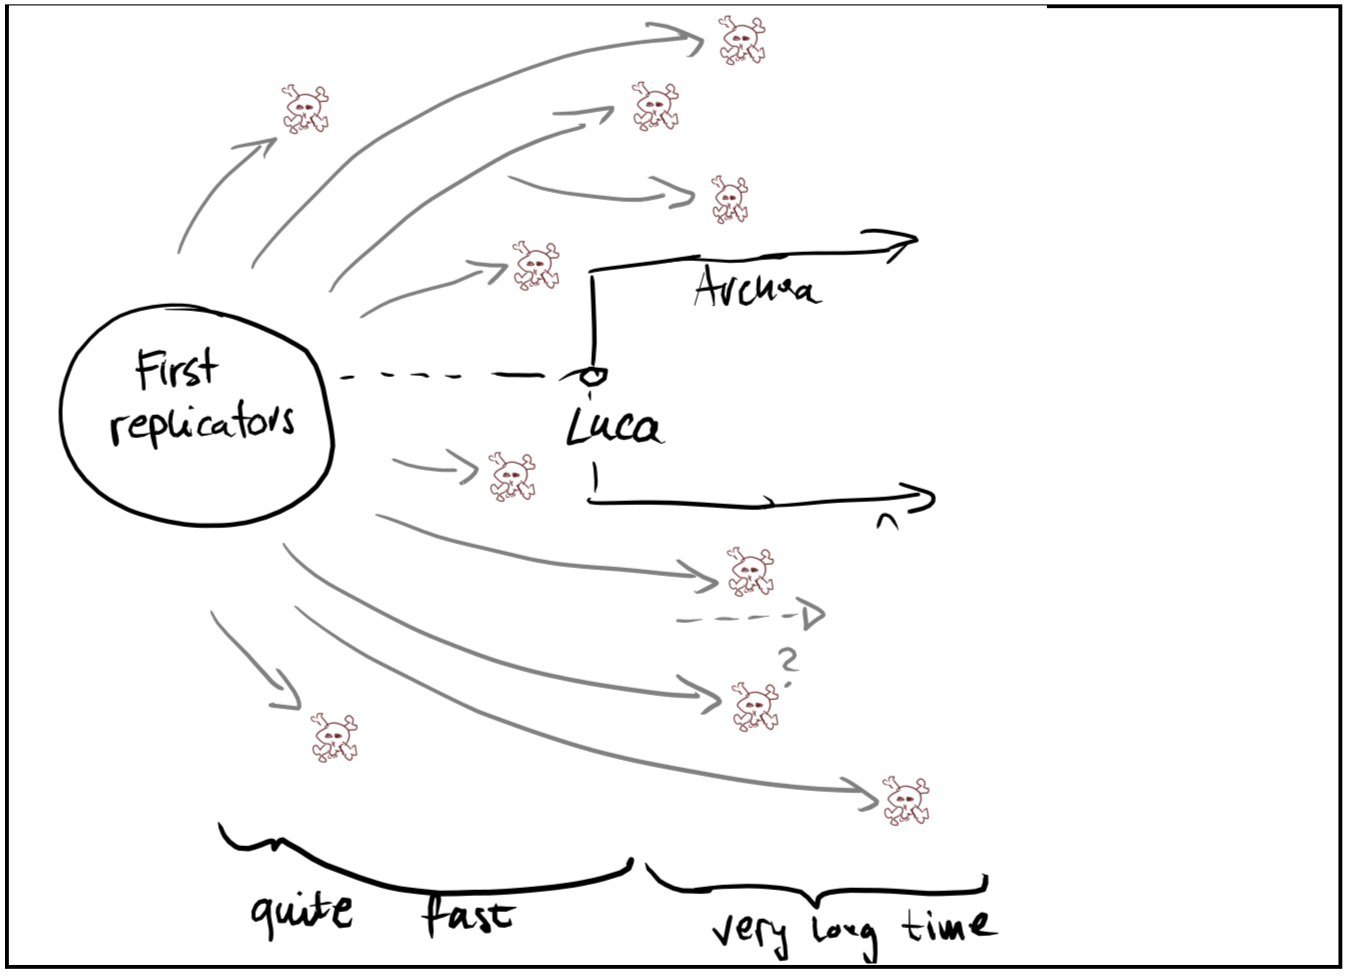 First
replicators
Archea
Luca
?
quite fast
very long time